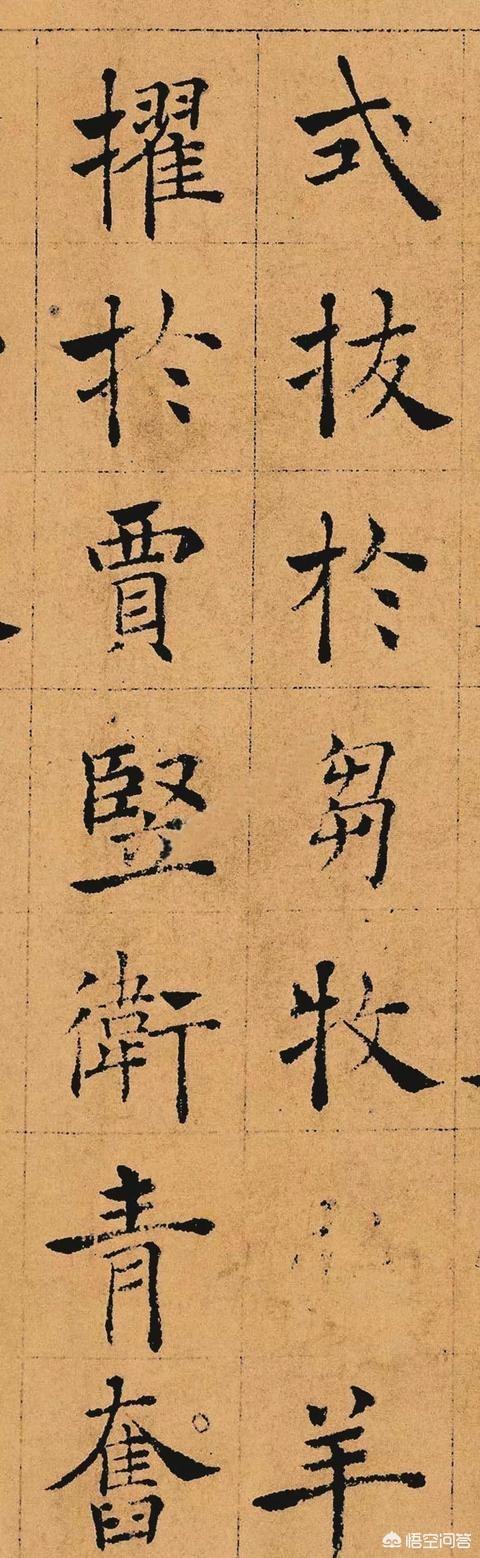 式拔於芻牧羊
擢於賈竪衛青奮
悟空问答